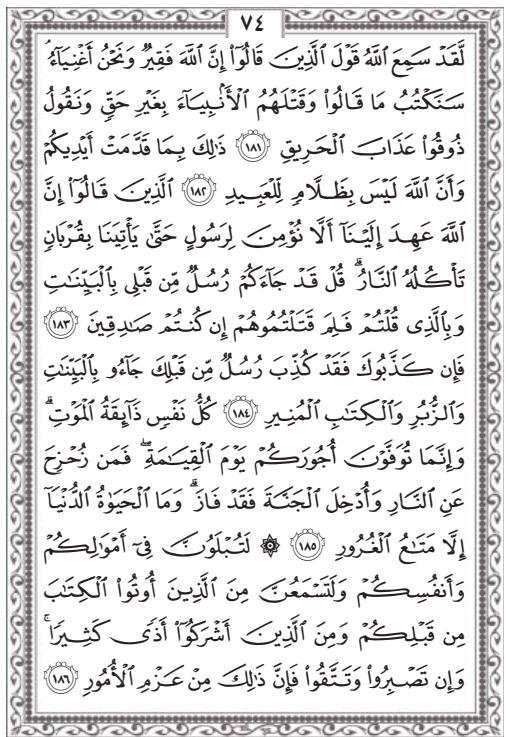 ٧٤
لَّقَدْ سَمِعَ اللَّهُ قَوْلَ الَّذِينَ قَالُوٓا۟ إِنَّ اللَّهَ فَقِيرٌ وَنَحْنُ أَغْنِيَآءُ
سَنَكْتُبُ مَا قَالُوا۟ وَقَتْلَهُمُ الْأَنۢبِيَآءَ بِغَيْرِ حَقٍّ وَنَقُولُ
ذُوقُوا۟ عَذَابَ الْحَرِيقِ ١٨١ ذَٰلِكَ بِمَا قَدَّمَتْ أَيْدِيكُمْ
وَأَنَّ اللَّهَ لَيْسَ بِظَلَّامٍ لِّلْعَبِيدِ ١٨٢ الَّذِينَ قَالُوٓا۟ إِنَّ
اللَّهَ عَهِدَ إِلَيْنَآ أَلَّا نُؤْمِنَ لِرَسُولٍ حَتَّىٰ يَأْتِيَنَا بِقُرْبَانٍ
تَأْكُلُهُ النَّارُ ۗ قُلْ قَدْ جَآءَكُمْ رُسُلٌ مِّن قَبْلِى بِالْبَيِّنَٰتِ
وَبِالَّذِى قُلْتُمْ فَلِمَ قَتَلْتُمُوهُمْ إِن كُنتُمْ صَٰدِقِينَ ١٨٣
فَإِن كَذَّبُوكَ فَقَدْ كُذِّبَ رُسُلٌ مِّن قَبْلِكَ جَآءُو بِالْبَيِّنَٰتِ
وَالزُّبُرِ وَالْكِتَٰبِ الْمُنِيرِ ١٨٤ كُلُّ نَفْسٍ ذَآئِقَةُ الْمَوْتِ ۗ
وَإِنَّمَا تُوَفَّوْنَ أُجُورَكُمْ يَوْمَ الْقِيَٰمَةِ ۖ فَمَن زُحْزِحَ
عَنِ النَّارِ وَأُدْخِلَ الْجَنَّةَ فَقَدْ فَازَ ۗ وَمَا الْحَيَوٰةُ الدُّنْيَآ
إِلَّا مَتَٰعُ الْغُرُورِ ١٨٥ ۞ لَتُبْلَوُنَّ فِىٓ أَمْوَٰلِكُمْ
وَأَنفُسِكُمْ وَلَتَسْمَعُنَّ مِنَ الَّذِينَ أُوتُوا۟ الْكِتَٰبَ
مِن قَبْلِكُمْ وَمِنَ الَّذِينَ أَشْرَكُوٓا۟ أَذًى كَثِيرًا ۚ
وَإِن تَصْبِرُوا۟ وَتَتَّقُوا۟ فَإِنَّ ذَٰلِكَ مِنْ عَزْمِ الْأُمُورِ ١٨٦